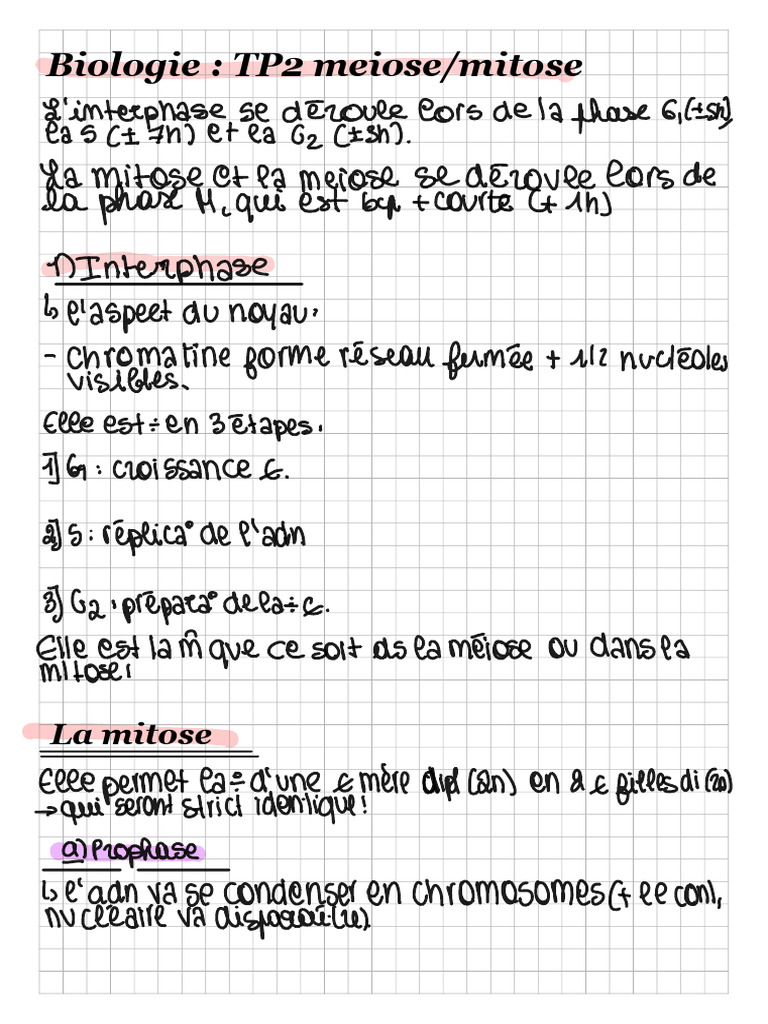 Biologie : TP2 meiose/mitose
L'interphase se déroule lors de la phase G1 (±5h)
la S (± 7h) et la G2 (±3h).
La mitose et la meiose se déroule lors de
la phase M, qui est bcp + courte (± 1h)
1) Interphase
↳ l'aspect du noyau:
- chromatine forme réseau fumée + 1/2 nucléoles
visibles.
Elle est ÷ en 3 étapes.
1] G1 : croissance ȼ.
2] S : réplica° de l'adn
3] G2 : prépara° de la ÷ ȼ.
Elle est la m̂ que ce soit ds la méiose ou dans la
mitose.
La mitose
Elle permet la ÷ d'une ȼ mère dipl (2n) en 2 ȼ filles di (2n)
→ qui seront strict identique!
a) Prophase
↳ l'adn va se condenser en chromosomes (+ le
nucléaire va